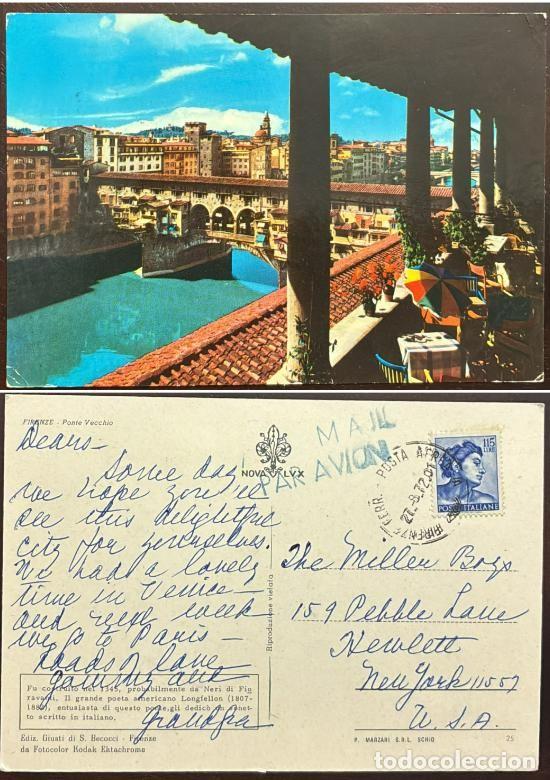 FIRENZE - Ponte Vecchio
Dears-
Some day
we hope you'll
see this delightful
city for yourselves.
We had a lovely
time in Venice-
and next week
we go to Paris-
Loads of love
Gammy and
Grandpa
Fu costruito nel 1345, probabilmente da Neri di Fio
ravanti. Il grande poeta americano Longfellow (1807-
1882), entusiasta di questo ponte, gli dedicò un sonet-
to scritto in italiano.
Ediz. Giusti di S. Becocci - Firenze
da Fotocolor Kodak Ektachrome
NOVA LVX
Riproduzione vietata
MAIL
PAR AVION
FERR. POSTA AEREA
27.-8.72.01
FIRENZE
115
LIRE
POSTE ITALIANE
The Miller Boys
159 Pebble Lane
Hewlett
New York 11557
U.S.A.
P. MARZARI S.R.L. SCHIO
25
todocoleccion